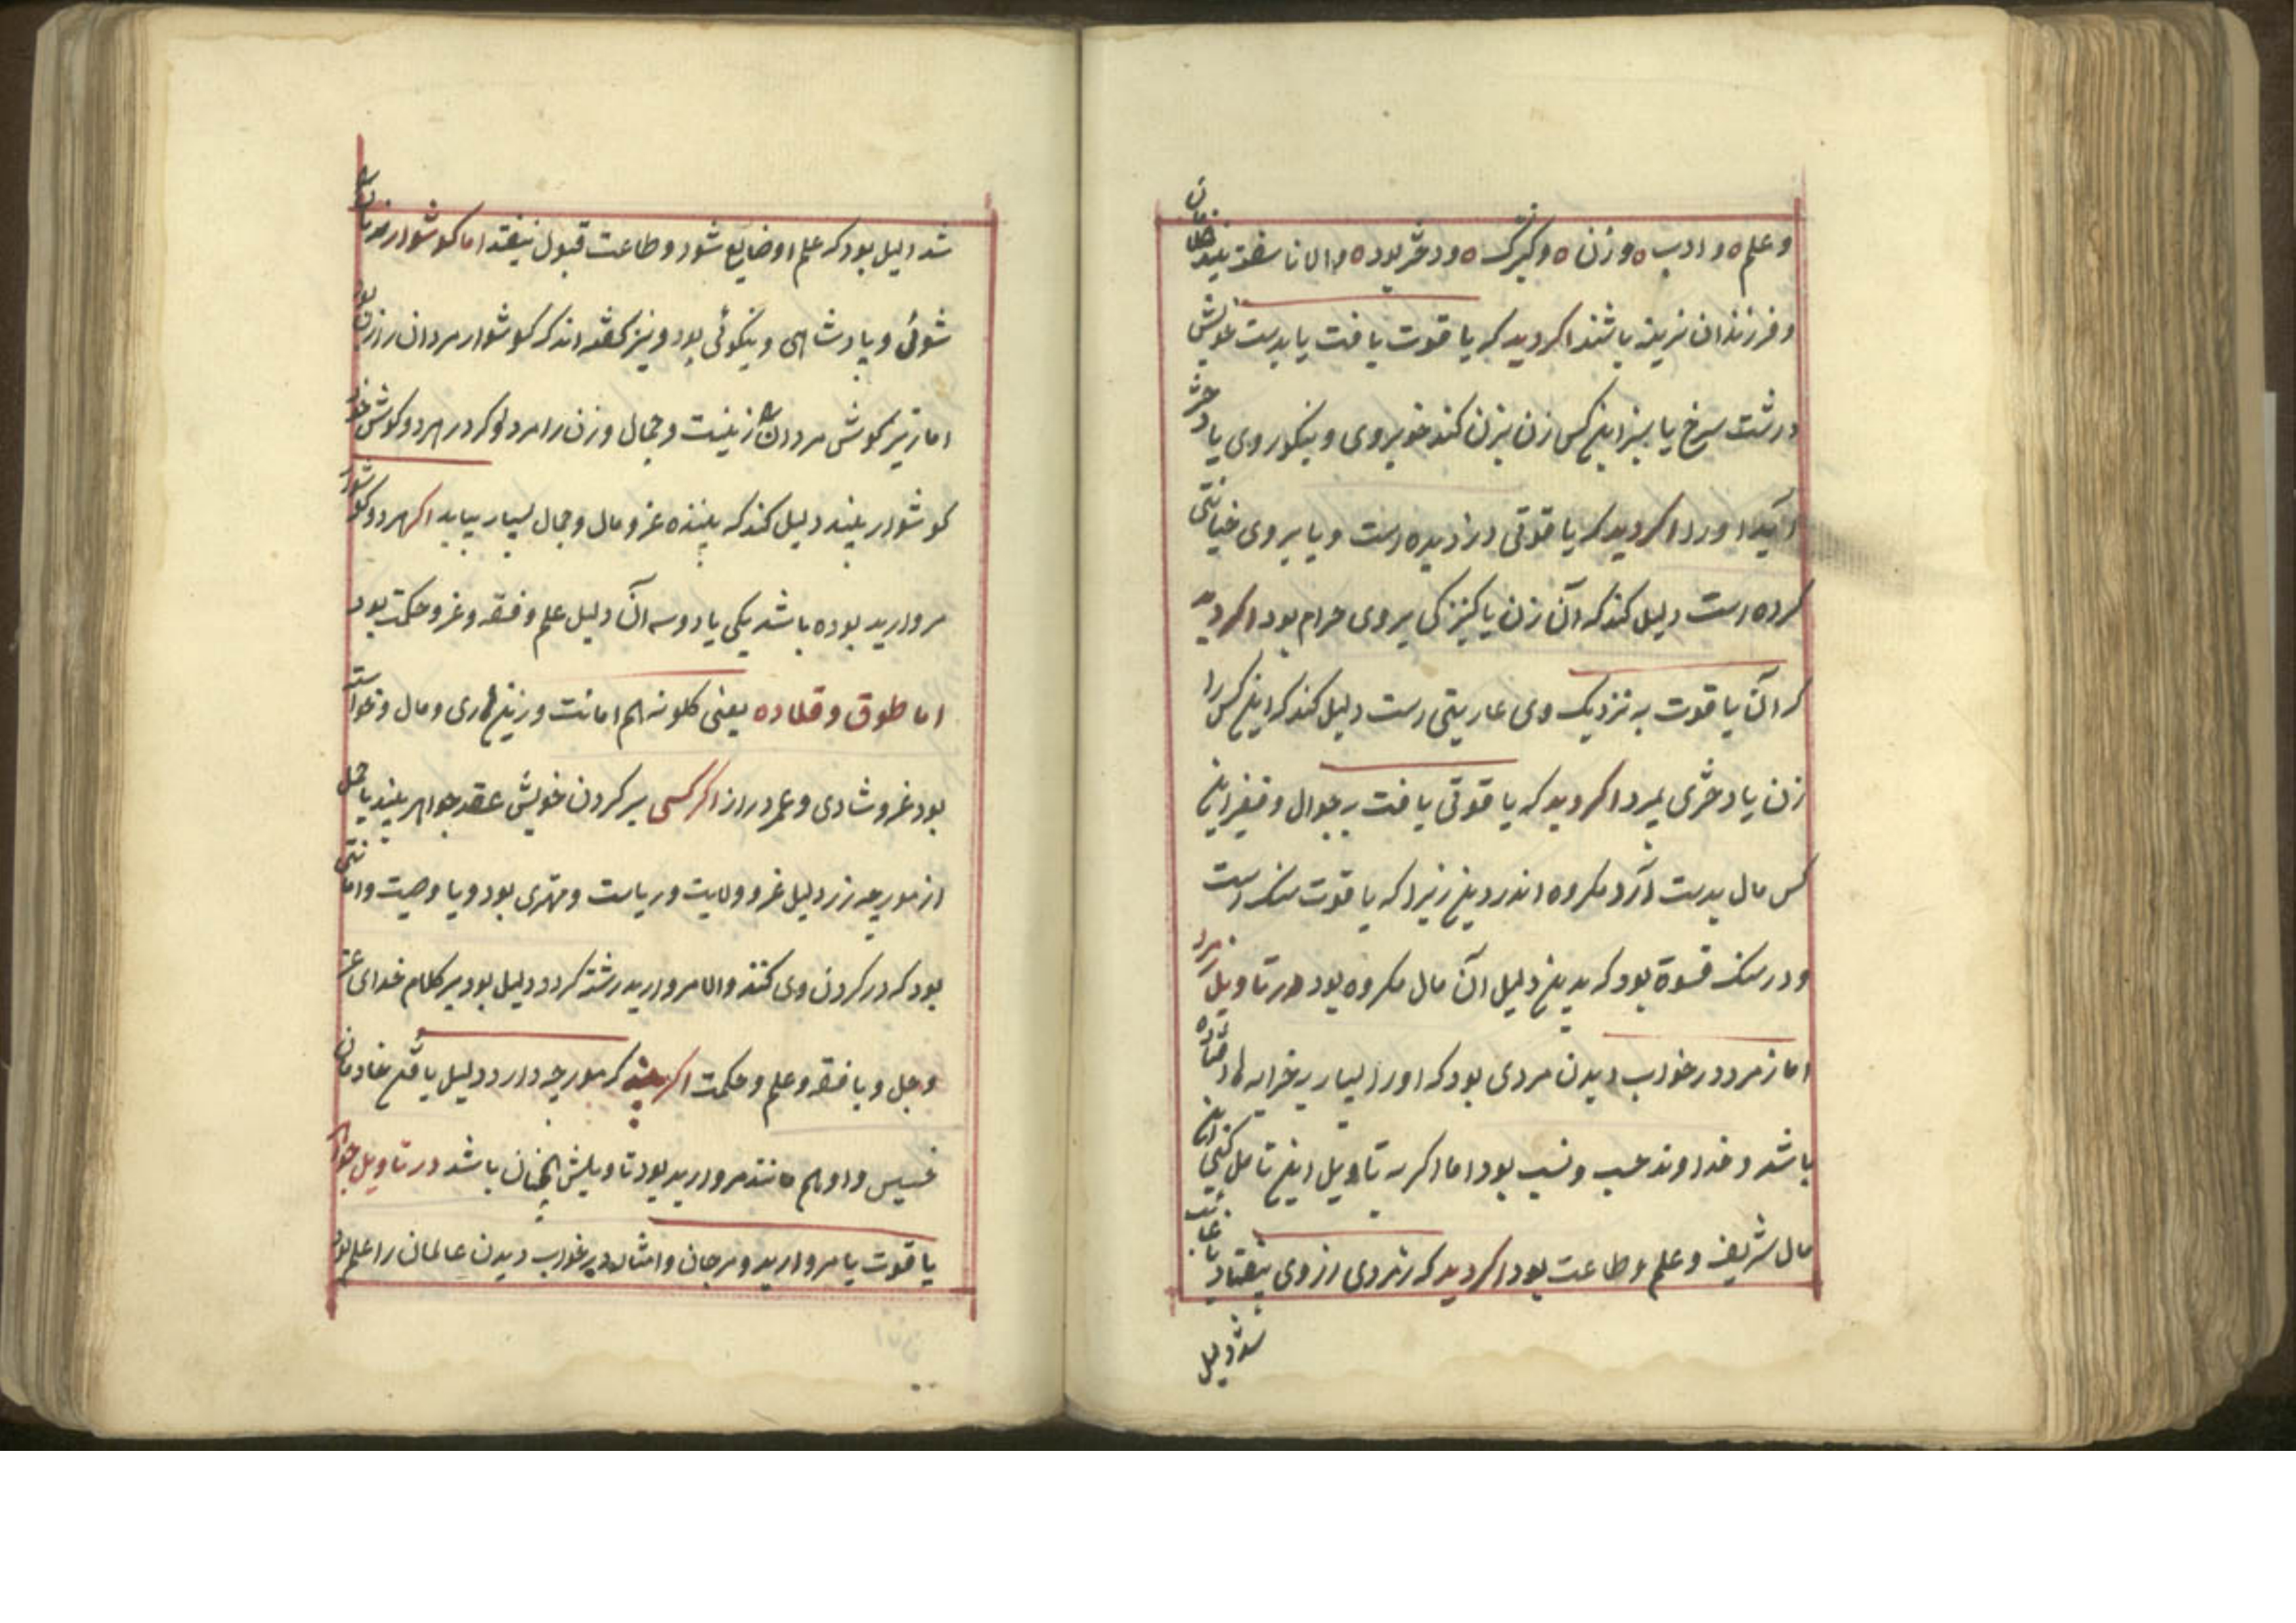 و علم ه و ادب ه و زن ه و کنیزک ه و دختر بود ه و الا ناسفته بیند غلامان
و فرزندان نرینه باشند اکر دید که یاقوت یافت یا بدست خویش
درشت سرخ یا سبز این کس زن بزن کند خوبروی و نیکو روی یا دختر
آید او را اکر دید که یاقوتی دزدیده است و یا بروی خیانتی
کرده است دلیل کند که آن زن یا کنیزکی بروی حرام بود اکر دید
که آن یاقوت به نزدیک وی عاریتی است دلیل کند که این کس را
زن یا دختری بمیرد اکر دید که یاقوتی یافت بجوال و قفیز این
کس مال بدست آرد مکروه اندر دین زیرا که یاقوت سنک است
و در سنک قسوة بود که بدین دلیل آن مال مکروه بود در تاویل زمرد
اما زمرد در خواب دیدن مردی بود که او را بسیار بخرابه ها افتاده
باشد و خداوند حسب و نسب بود اما اکر به تاویل این تامل کنی این
مال شریف و علم و طاعت بود اکر دید که زمردی از وی بیفتاد یا غائب
شد دلیل
شد دلیل بود که علم او ضایع شود و طاعت قبول نیفتد اما کوشوار مر زنان را
شوئی و پادشاهی و نیکوئی بود و نیز کفته اند که کوشوار مردان را زن بود
اما زیر کوش مردان را زینت و جمال و زن را مرد و کر در هر دو کوش خود
کوشوار بیند دلیل کند که بیننده عز و مال و جمال بسیار بیابد اکر هر دو کوشوار
مروارید بوده باشد یکی یا دو سه آن دلیل علم و فقه و عز و حکمت بود
اما طوق و قلاده یعنی کلونه هم امانت و زینهاری و مال و خواسته
بود عز و شادی و عمر دراز اکر کسی بر کردن خویش عقد جواهر بیند یا حمل
از مورچه زر دلیل عز و ولایت و ریاست و مهتری بود و یا وصیت و امانتی
بود که در کردن وی کنند و الا مروارید رشته کردد دلیل بود بر کلام خدای عز
و جل و یا فقه و علم و حکمت اکر بیند که مورچه دارد دلیل یافتن خادمان
خسیس و او هم مانند مروارید بود تاویلش همچنان باشد در تاویل جواهر
یاقوت یا مروارید و مرجان و امثال در خواب دیدن عالمان را علم بود